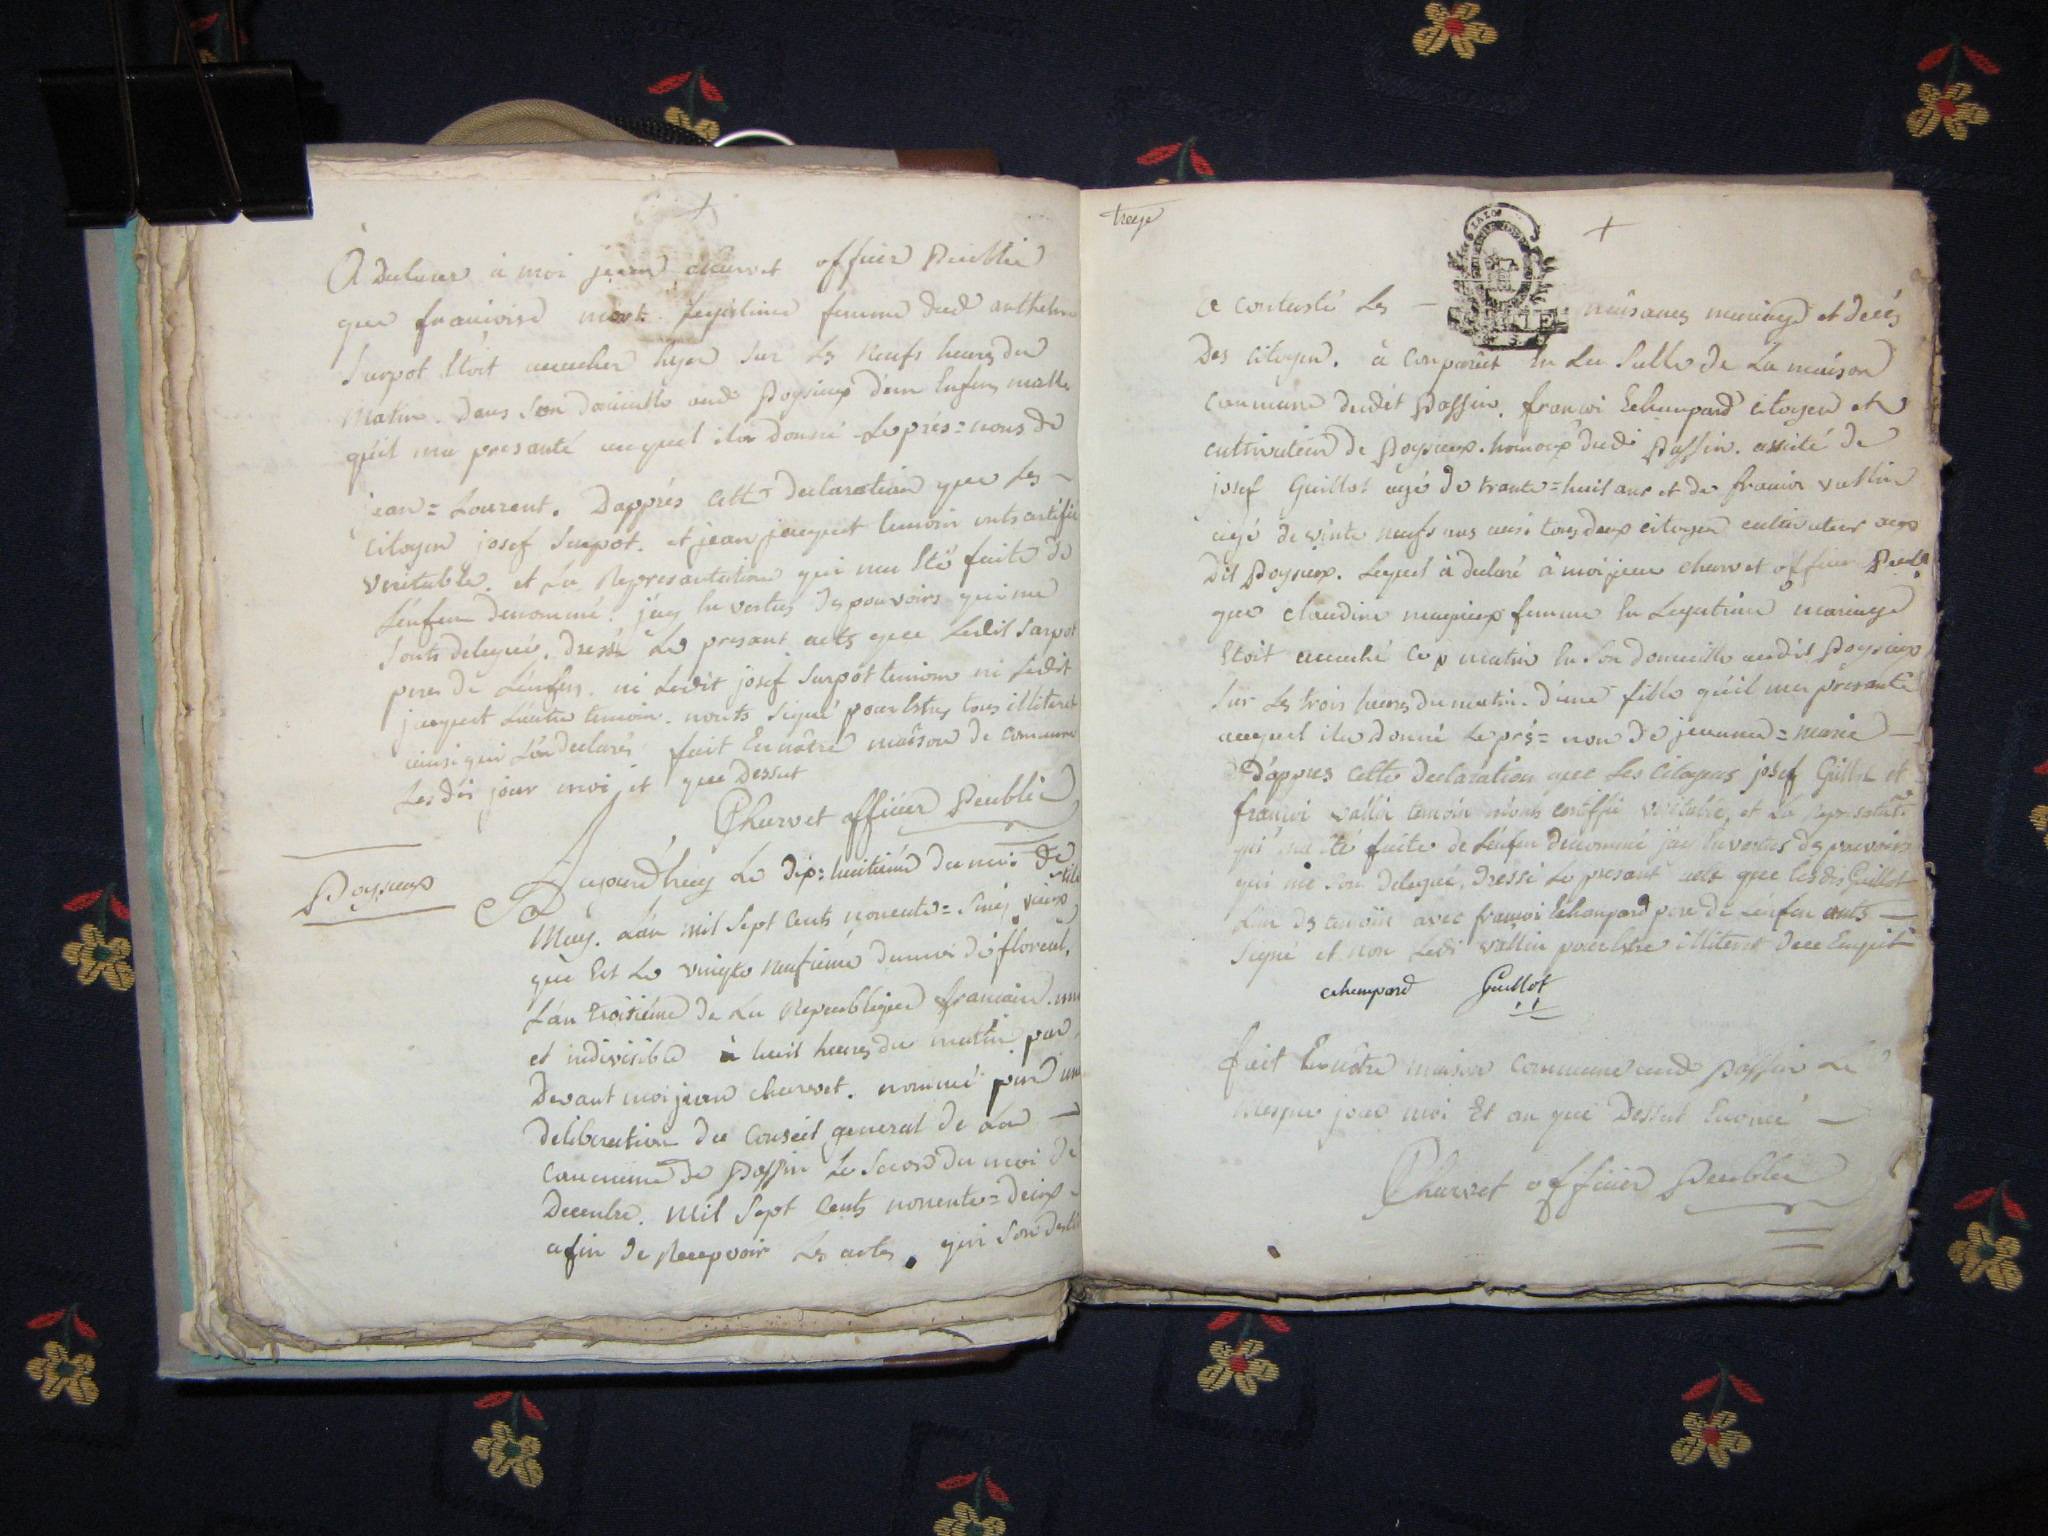 à declarer à moi jean charvet officier Peublic
que francoise legitime femme dud anthelme
Surpot Etoit accucher hyer sur Les Neufs heures du
matin dans Son domicille aud Poysieux d'un Enfens malle
qu'il ma presanté auquel ila donné Le prés=noms de
jean=Lourent. D'apprés cette declaration que Les
citoyen josef Surpot. et jean jacquet temoin onts certifié
veritable. et La Represantation qui ma Eté faite de
L'enfen denommé. j'ay En vertus des pouvoirs qui me
Sonts delegué. dressé Le presant acts que Ledit Surpot
pere de L'enfen. ni Ledit josef Surpot temoin ni Ledit
jacquet L'autre temoin. nonts Signé pour Estres tous illiteret
ainsi qui L'on declarés fait En nôtre maison de commune
Les dis jour moi et que Dessut
Charvet officier Peublic
Poysieux
Aujourd'huy Le dix=huitiéme du moi de
May. L'an mil Sept Cents nonente=Sinq vieux stile
que Est Le vingte neufiéme du moi de floreal.
L'an troisiéme de La Republique francaise. une
et indivisible à huit heures du matin par
Devant moi jean charvet. nommé par une
deliberation du Conseil general de La
Commune de Passin Le Second du moi de
Decembre. mil Sept Cents nonente=deux
afin de Recepvoir Les actes. qui Son desti
treze
a contasté Les — naîsances mariage et decés
Des Citoyen. à Conparut En La Salle de La maison
Commune dudit Passin. francoi Echampard citoyen et
cultivateur de Poysieux. hamaux dudi Passin. assisté de
josef Guillot agé de trante=huit ans et de francoi vallin
agé de vinte neufs ans ausi tous deux citoyen cultivateur aux
Dit Poysieux. Lequel à declaré à moi jean charvet officier Peubl
que claudine femme En Legitime mariage
Etoit accuché matin En Son domicille audit Poysieux
Sur Les trois heures du matin. d'une fille qu'il ma presanté
auquel ila donné Le prés=non de jeanne=marie —
D'appres cette declaration que Les Citoyens josef Guillot et
francoi vallin temoin certiffié veritable, et La Represantati
qui ma Eté faite de L'enfen denommé j'ai En vertus des pouvoirs
qui me Son delegué, dressé Le presant acts que Lesdis Guillot
L'un des temoin avec francoi Echampard pere de L'enfen onts —
Signé et non Ledi vallin pour Estre illiteret
echampard Guillot
fait En nôtre maison Commune aud Passin Le
mesme jour moi Et an que Dessut Enoncé —
Charvet officier Peublic